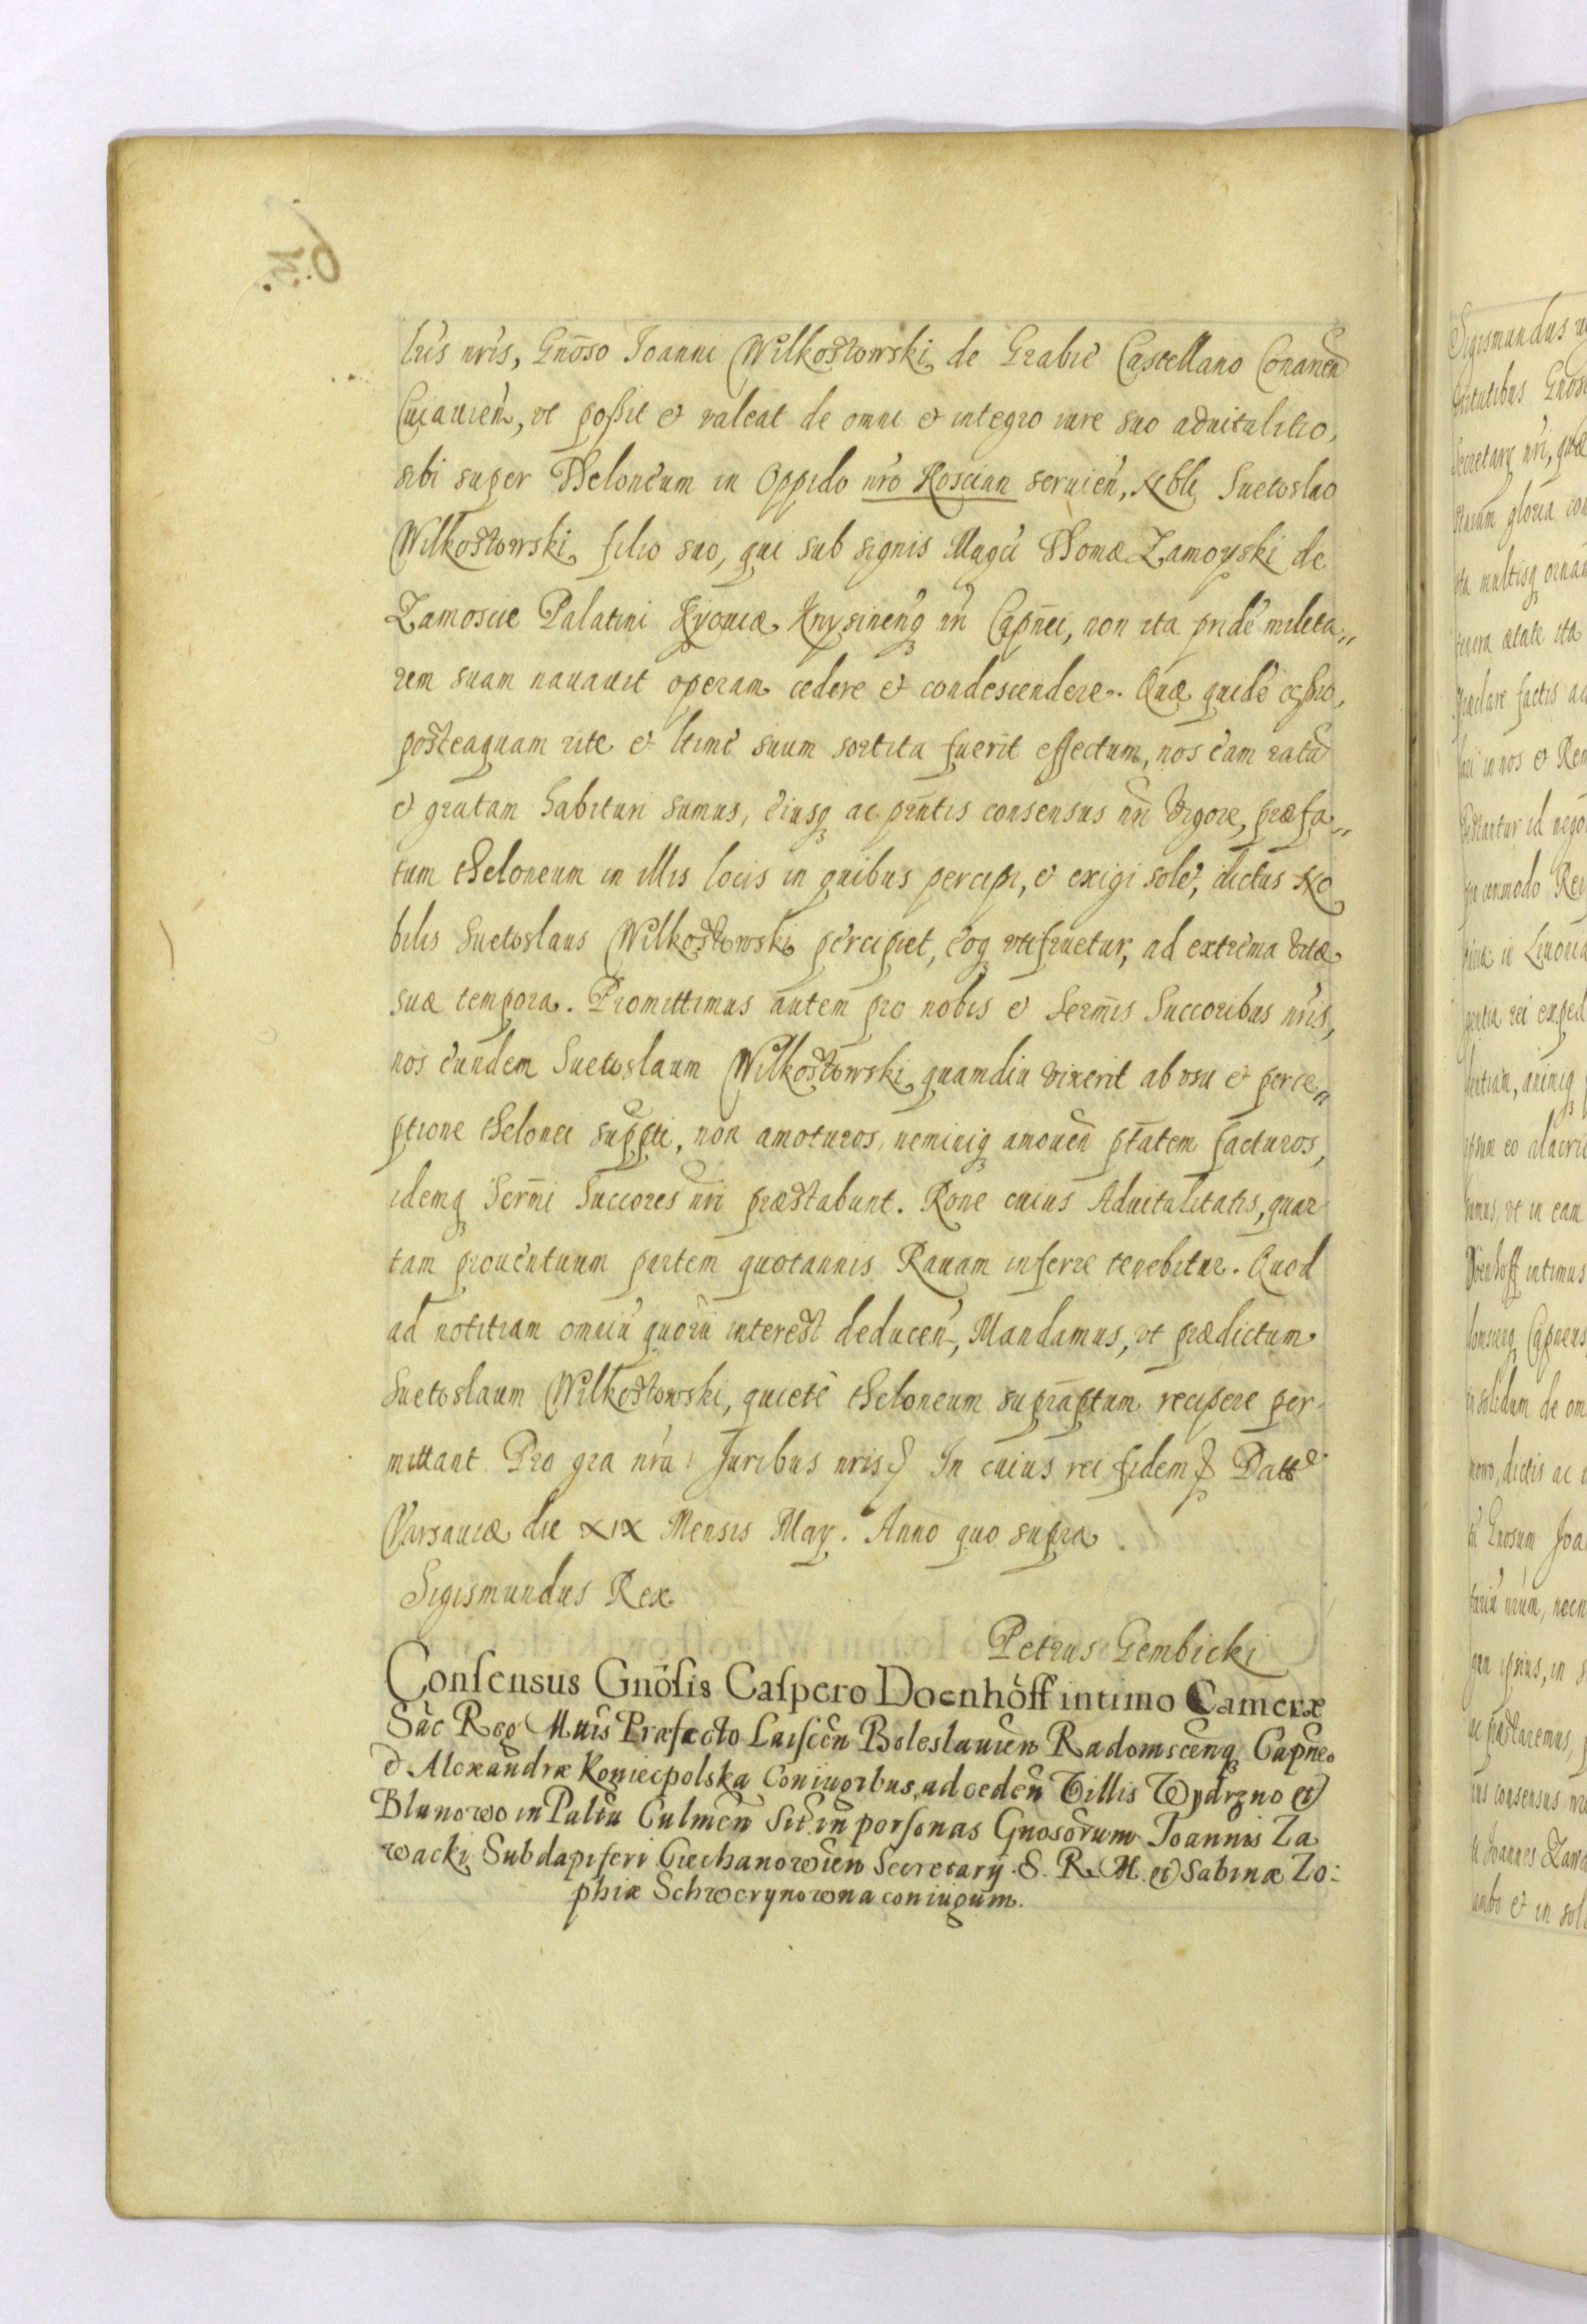 lris nris, Gnoso Joanni Wilkostowski de Grabie Castellano Conarien
Cuiauien, vt possit et valeat de omni et integro iure suo aduitalitio,
sibi super Theloneum in Oppido nro Koscian seruien, Nobli Suetoslao
Wilkostowski filio suo, qui sub signis Magci Thomæ Zamoyski de
Zamoscie Palatini Kyouiæ Knysinenq in Capnei, non ita pride milita„
rem suam nauauit operam cedere et condescendere. Quæ quide cessio,
posteaquam rite et ltime suum sortita fuerit effectum, nos eam rata
et gratam habituri sumus, eiusq ac pntis consensus nri vigore, præfa„
tum theloneum in illis locis in quibus percipi, et exigi solet, dictus No
bilis Suetoslaus Wilkostowski percipiet, eoq vtifruetur, ad extrema vitæ
suæ tempora. Promittimus autem pro nobis et Sermis Succoribus nris,
nos eundem Suetoslaum Wilkostowski quamdiu vixerit ab vsu et perce„
ptione thelonei suppti, non amoturos, neminiq amouen ptatem facturos,
idemq Sermi Succores nri præstabunt. Rone cuius Aduitalitatis, quar
tam prouentuum partem quotannis Rauam inferre tenebitur. Quod
ad notitiam omniu quoru interest deducen, Mandamus, vt prædictum
Suetoslaum Wilkostowski, quiete theloneum supraptum recipere per-
mittant. Pro gra nra. Juribus nris In cuius rei fidem Datt
Varsauiæ die XIX Mensis May. Anno quo supra
Sigismundus Rex
Petrus Gembicki
Consensus Gnosis Caspero Doenhoff intimo Cameræ
Sac Reg Mtis Præfecto Laiscen Boleslauien Radomscenq Capneo
et Alexandræ Koniecpolska Coniugibus, ad ceden Villis Wydrzno et
Blunowo in Paltu Culmen Sit in personas Gnosorum Joannis Za
wacki Subdapiferi Ciechanowien Secretarij S. R. M. et Sabinæ Zo-
phiæ Schwerynowna coniugum.